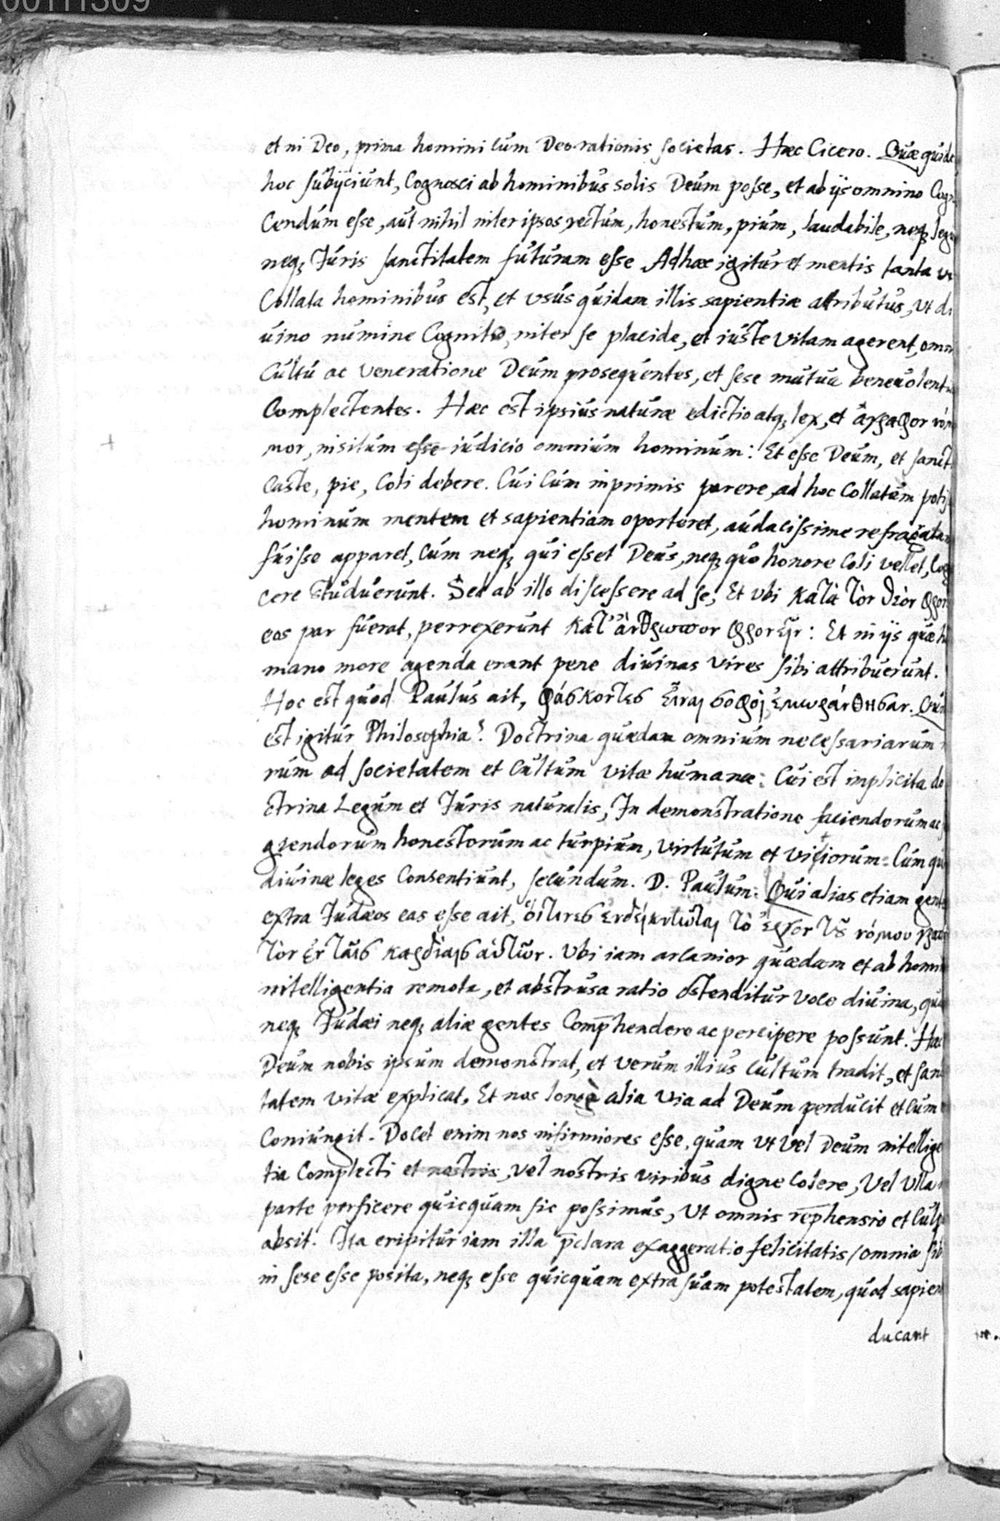 00111309
et in Deo, prima homini cum Deo rationis societas. Hæc Cicero. Quæ quide
hoc subijciunt, Cognosci ab hominibus solis Deum posse, et ab ijs omnino Cogn
Cendum esse, aut nihil inter ipsos rectum, honestum, pium, laudabile, neq; leg
neq; Juris sanctitatem futuram esse Ad hæc igitur et mentis tanta vi
Collata hominibus est, et vsus quidam illis sapientiæ attributus, vt di
uino numine Cognito, inter se placide, et iuste vitam agerent, omn
Cultu ac veneratione Deum prosequentes, et sese mutua beneuolenti
Complectentes. Hæc est ipsius naturæ edictio atq; lex, et ἄγραφον νό
μον, insitum esse iudicio omnium hominum: Et esse Deum, et sanct
Caste, pie, Coli debere. Cui Cum inprimis parere, ad hoc Collatam poti
hominum mentem et sapientiam oporteret, audacissime refragatam
fuisse apparet, Cum neq; qui esset Deus, neq; quo honore Coli vellet, Cog
cere studuerunt. Sed ab illo discessere ad se, Et vbi κατὰ τὸν θεὸν φρον
eos par fuerat, perrexerunt κατ' ἄνθρωπον φρονεῖν: Et in ijs quæ h
mano more agenda erant pene diuinas vires sibi attribuerunt.
Hoc est quod Paulus ait, φάσκοντες εἶναι σοφοὶ ἐμωράνθησαν. Qui
est igitur Philosophia? Doctrina quædam omnium necessariarum r
rum ad societatem et Cultum vitæ humanæ: Cui est implicita do
ctrina Legum et Juris naturalis, In demonstratione faciendorum ac
giendorum honestorum ac turpium, virtutum et vitiorum: Cum qu
diuinæ leges Consentiunt, secundum. D. Paulum: Qui alias etiam gent
extra Judæos eas esse ait, οἵτινες ἐνδείκνυνται τὸ ἔργον τοῦ νόμου γρα
τὸν ἐν ταῖς καρδίαις αὐτῶν. Vbi iam arcanior quædam et ab homi
intelligentia remota, et abstrusa ratio ostenditur voce diuina, qua
neq; Judæi neq; aliæ gentes Comp̄hendere ac percipere possunt. Hæc
Deum nobis ipsum demonstrat, et verum illius Cultum tradit, et san
tatem vitæ explicat, Et nos longè alia via ad Deum perducit et Cum
Coniungit. Docet enim nos infirmiores esse, quam vt vel Deum intellige
tia Complecti et nostris, vel nostris viribus digne Colere, Vel vlla
parte perficere quicquam sic possimus, Vt omnis rep̄hensio et Culp
absit. Ita eripitur iam illa p̄clara exaggeratio felicitatis/omnia sib
in sese esse posita, neq; esse quicquam extra suam potestatem, quod sapien
ducant